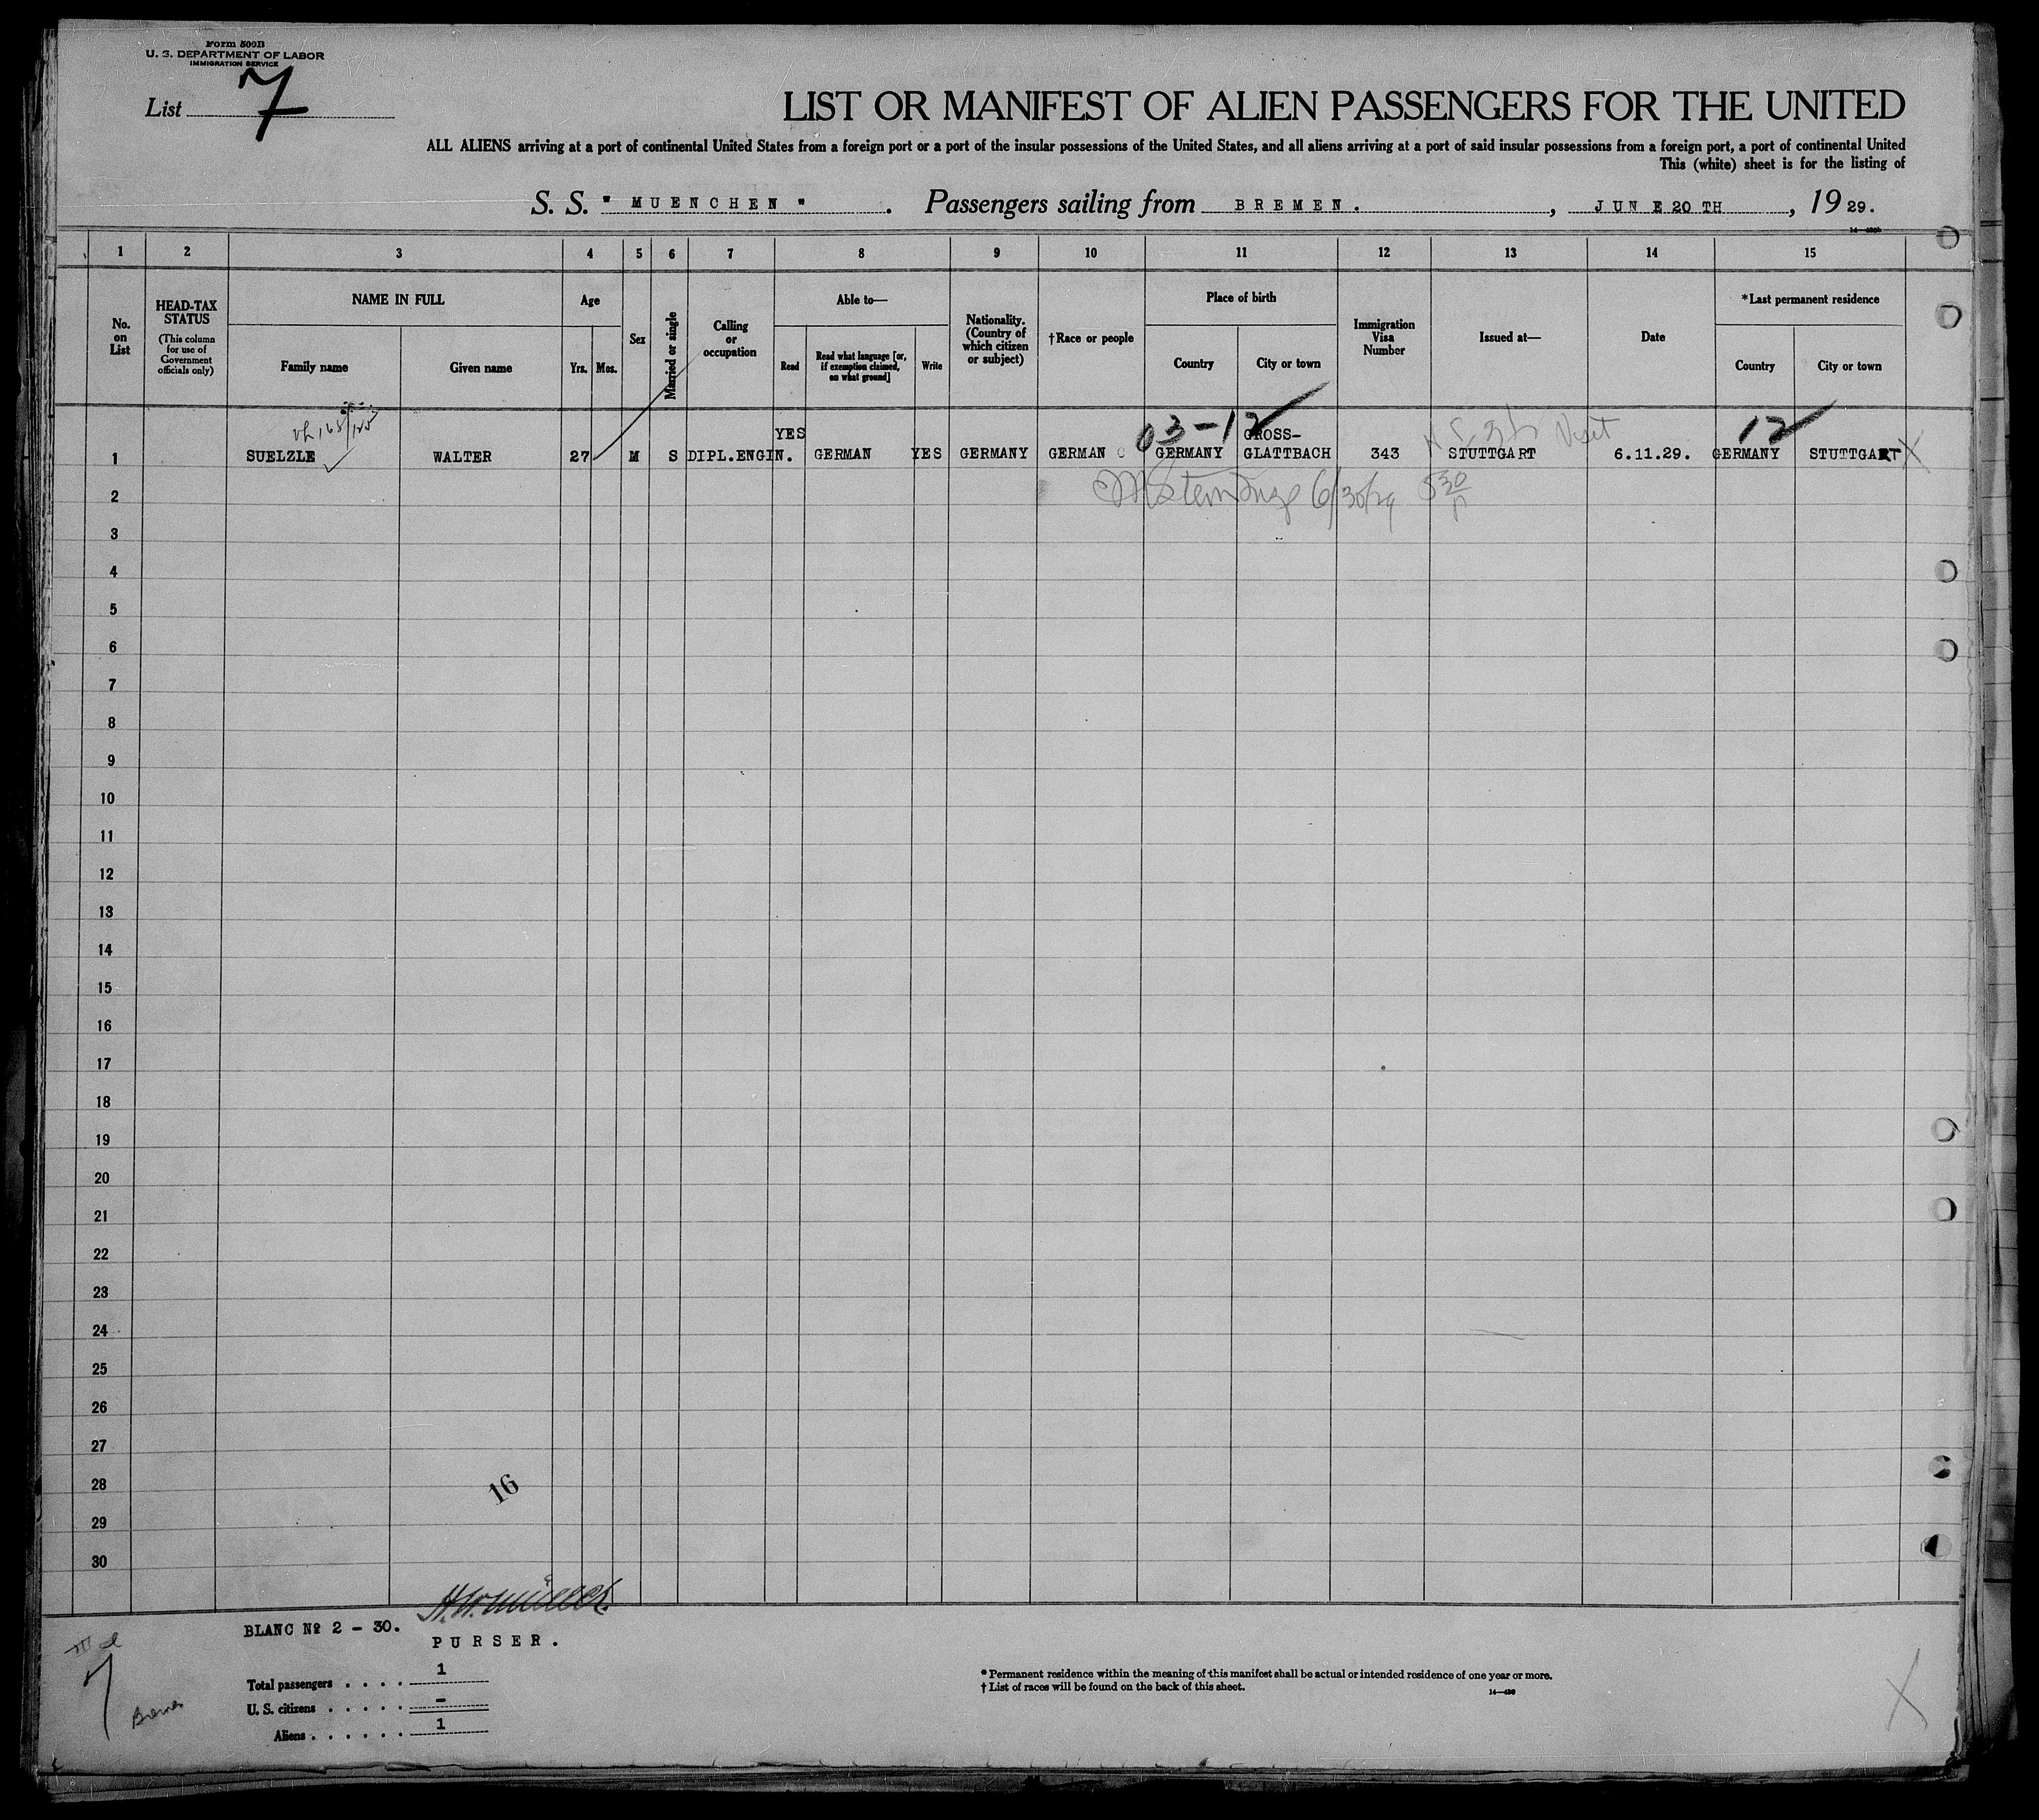 Form 500B
U. S. DEPARTMENT OF LABOR
IMMIGRATION SERVICE
List 7
LIST OR MANIFEST OF ALIEN PASSENGERS FOR THE UNITED
ALL ALIENS arriving at a port of continental United States from a foreign port or a port of the insular possessions of the United States, and all aliens arriving at a port of said insular possessions from a foreign port, a port of continental United
This (white) sheet is for the listing of
S. S. " MUENCHEN " . Passengers sailing from BREMEN. , JUNE 20 TH , 19 29.
1 2 3 4 5 6 7 8 9 10 11 12 13 14 15
No. on List
HEAD-TAX STATUS
(This column for use of Government officials only)
NAME IN FULL
Family name
Given name
Age
Yrs. Mos.
Sex
Married or single
Calling or occupation
Able to—
Read
Read what language [or, if exemption claimed, on what ground]
Write
Nationality. (Country of which citizen or subject)
†Race or people
Place of birth
Country
City or town
Immigration Visa Number
Issued at—
Date
*Last permanent residence
Country
City or town
03-12 Visit 12
1 SUELZLE WALTER 27 M S DIPL.ENGIN. YES GERMAN YES GERMANY GERMAN GERMANY GROSS-GLATTBACH 343 STUTTGART 6.11.29. GERMANY STUTTGART X
2 6/30/29 5 30
3
4
5
6
7
8
9
10
11
12
13
14
15
16
17
18
19
20
21
22
23
24
25
26
27
28
16
29
30
BLANC Nº 2 - 30.
PURSER.
Total passengers . . . . 1
U. S. citizens . . . . . –
Aliens . . . . . . 1
7
Bremen
* Permanent residence within the meaning of this manifest shall be actual or intended residence of one year or more.
† List of races will be found on the back of this sheet.
X